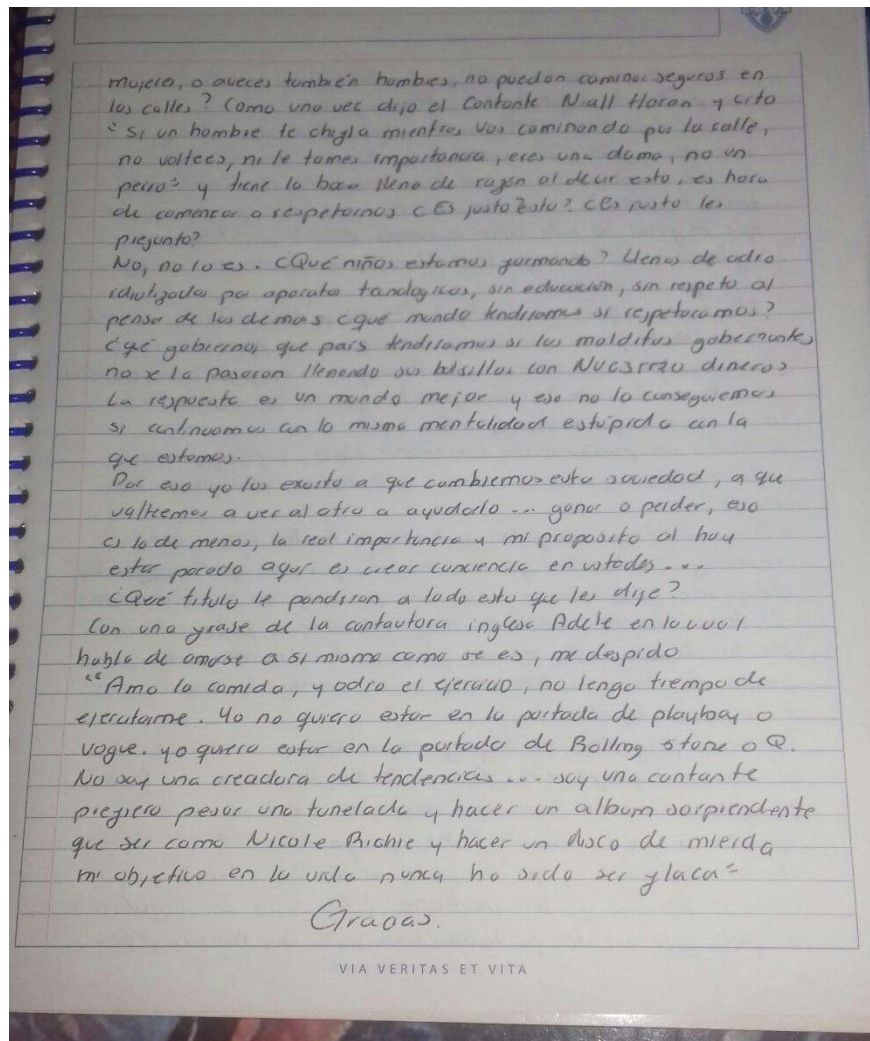 mujeres, o aveces tambien hombres, no pueden caminar seguros en
las calles? Como una vez dijo el cantante Niall Horan y cito
"Si un hombre te chifla mientras vas caminando por la calle,
no voltees, ni le tomes importancia, eres una dama, no un
perro" y tiene la boca llena de razón al decir esto, es hora
de comenzar a respetarnos ¿Es justo esto? ¿Es justo les
pregunto?
No, no lo es. ¿Qué niños estamos formando? Llenos de odio
idiotizados por aparatos tanologicos, sin educación, sin respeto al
pensar de los demas ¿qué mundo tendriamos si respetaramos?
¿qué gobierno, que país tendriamos si los malditos gobernantes
no se la pasaran llenando sus bolsillos con NUESTRO dinero?
La respuesta es un mundo mejor y eso no lo conseguiremos
si continuamos con la misma mentalidad estúpida con la
que estamos.
Por eso yo los exorto a que cambiemos esta sociedad, a que
volteemos a ver al otro a ayudarlo ... ganar o perder, eso
es lo de menos, la real importancia y mi proposito al hoy
estar parado aqui es crear conciencia en ustedes ...
¿Qué titulo le pondrian a todo esto que les dije?
Con una frase de la cantautora inglesa Adele en la cual
habla de amarse a si mismo como se es, me despido
"Amo la comida, y odio el ejercicio, no tengo tiempo de
ejercitarme. Yo no quiero estar en la portada de playboy o
vogue. yo quiero estar en la portada de Rolling stone o Q.
No soy una creadora de tendencias ... soy una cantante
prefiero pesar una tonelada y hacer un album sorprendente
que ser como Nicole Richie y hacer un disco de mierda
mi objetivo en la vida nunca ha sido ser flaca"
Gracias.
VIA VERITAS ET VITA